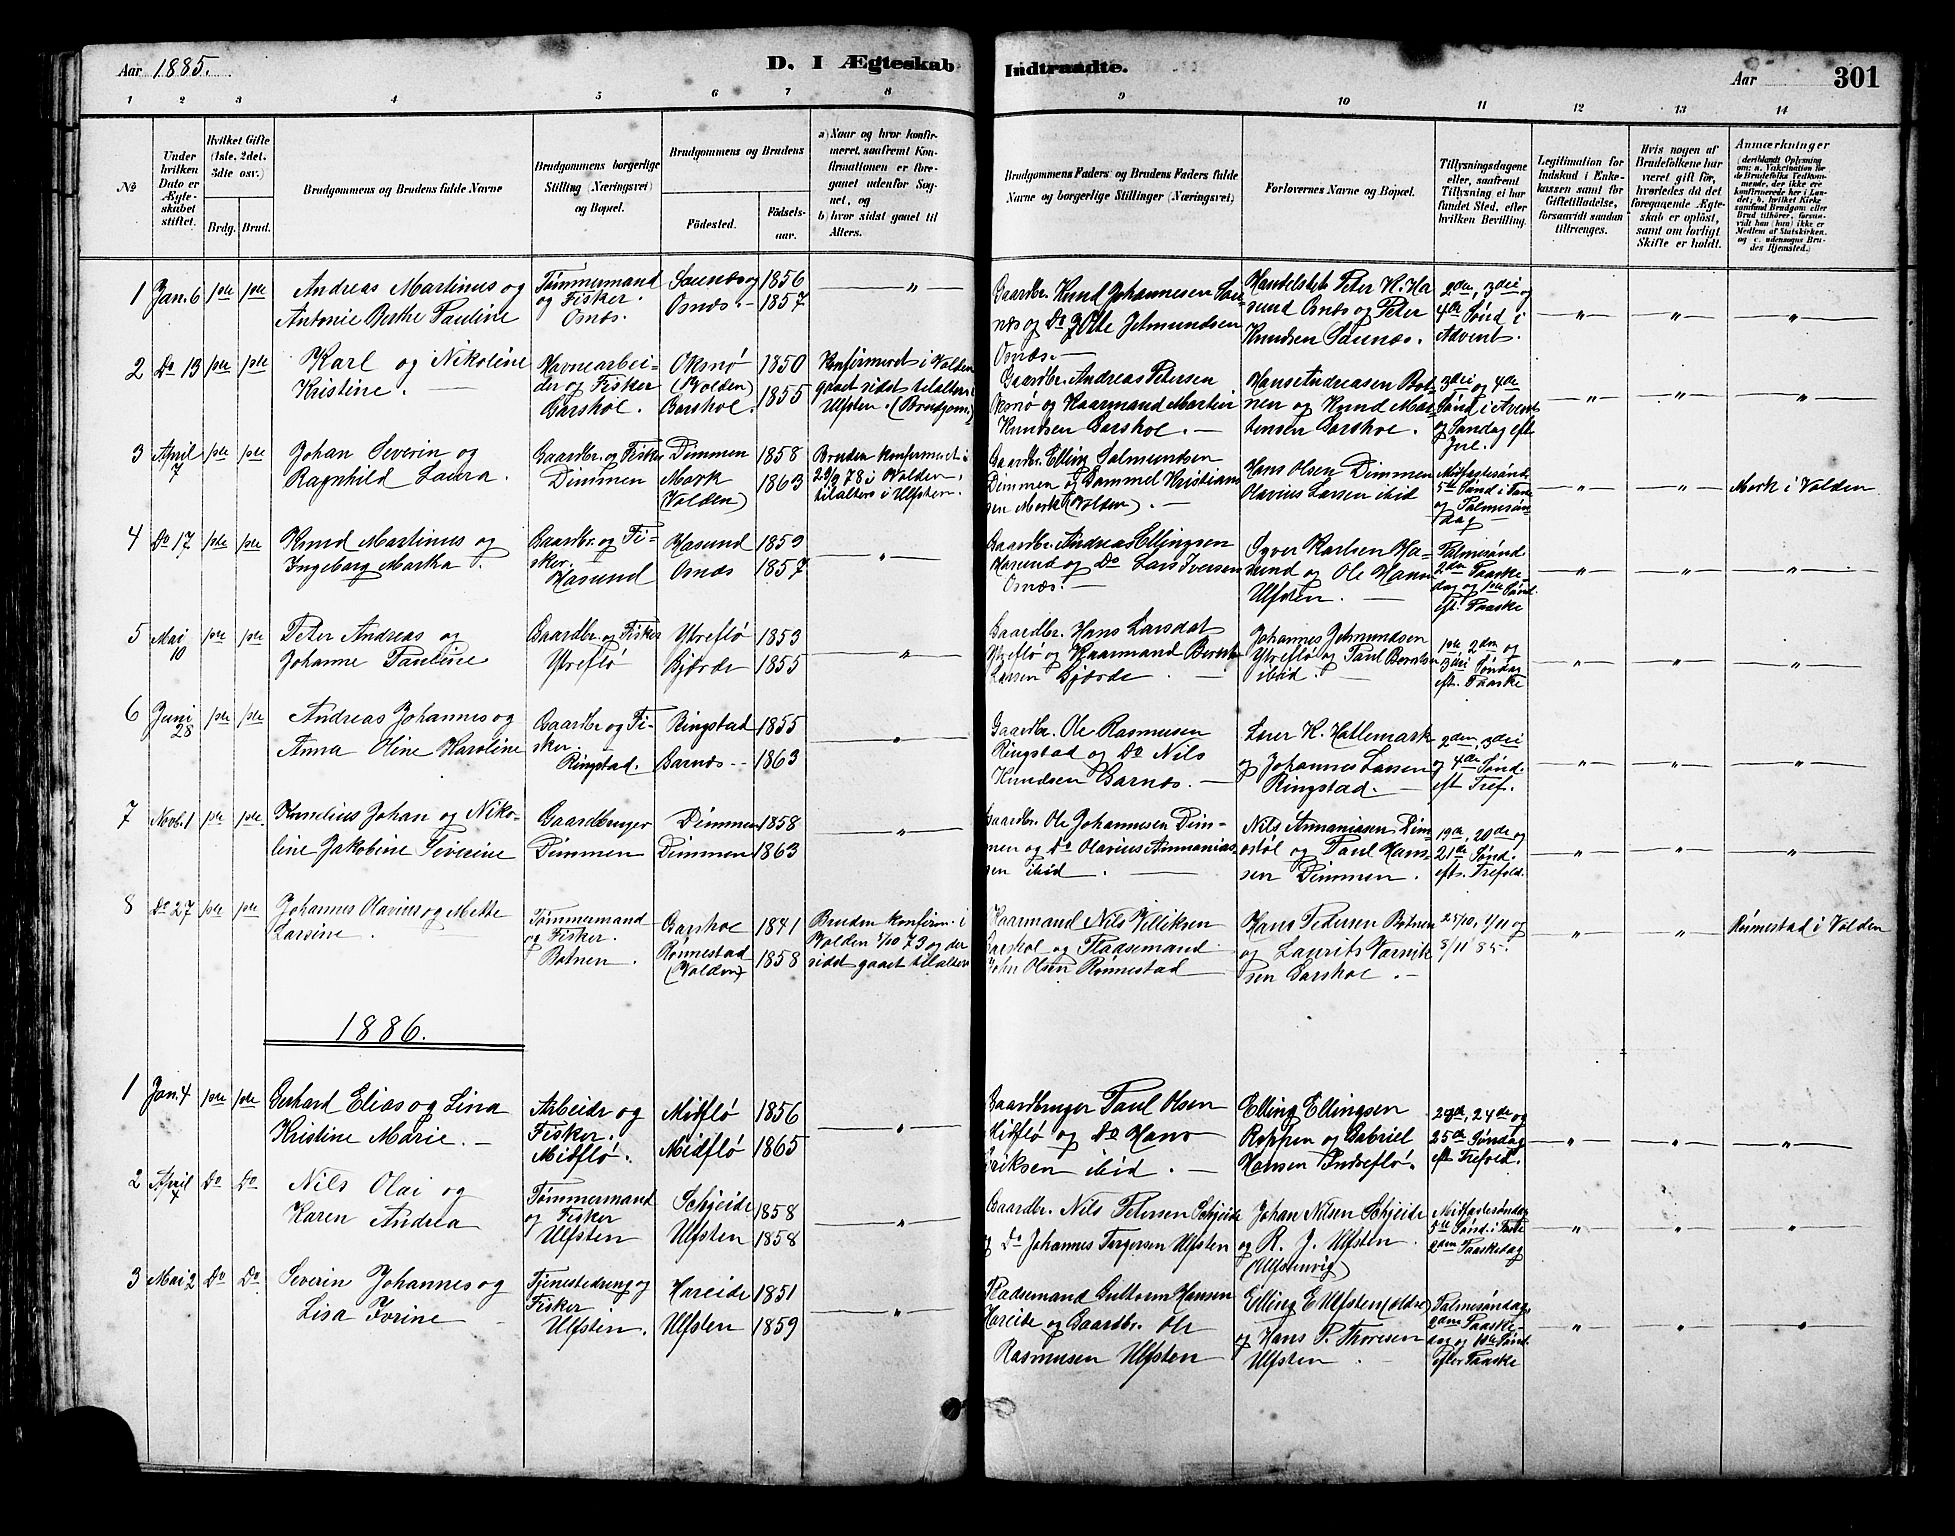 Aar 1885.
D. I Ægteskab Indtraadte.
Aar
301
1 2 3 4 5 6 7 8 9 10 11 12 13 14
No
Under hvilken Dato er Ægteskabet stiftet.
Hvilket Gifte (1ste, 2det, 3dte osv.)
Brdg. Brud.
Brudgommens og Brudens fulde Navne
Brudgommens borgerlige Stilling (Næringsvei) og Bopæl.
Brudgommens og Brudens
Fødested.
Fødselsaar.
a) Naar og hvor konfirmeret, saafremt Konfirmationen er foregaaet udenfor Sognet, og
b) hvor sidst gaaet til Alters.
Brudgommens Faders og Brudens Faders fulde Navne og borgerlige Stillinger (Næringsvei)
Forlovernes Navne og Bopæl.
Tillysningsdagene eller, saafremt Tillysning ei har fundet Sted, efter hvilken Bevilling.
Legitimation for Indskud i Enkekassen samt for Giftetilladelse, forsaavidt saadan tiltrænges.
Hvis nogen af Brudefolkene har været gift før, hvorledes da det foregaaende Ægteskab er opløst, samt om lovligt Skifte er holdt.
Anmærkninger
1 Jan. 6 1ste 1ste
Andreas Martinus og
Antonie Berthe Pauline
Tømmermand
og Fisker.
Osnæs.
Saunæs
Osnæs.
1856
1857
Gaardbr. Knud Johannesen Sau-
næs og Do Ole Jetmundsen
Osnæs.
Handelsbet. Peter H. Ha-
sund Osnæs og Peter
Knudsen Saunæs.
2den, 3die og
4de Sønd i
Advent.
2 Do 13 1ste 1ste
Karl og Nikoline
Kristine.
Havnearbei-
der og Fisker
Garshol.
Oksnø
(Volden)
Garshol.
1850
1855
Konfirmeret i Volden
gaaet sidst til alters i
Ulfsten. (Brudgom)
Gaardbr. Andreas Petersen
Oksnø og Kaarmand Martin
Knudsen Garshol.
Hans Andreasen Bot-
nen og Knud Mar-
tensen Garshol.
3die og 4de
Sønd i Advent
og Søndag eft
Jul.
3 April 7 1ste 1ste
Johan Severin og
Ragnhild Laura.
Gaardbr. og Fisker
Dimmen
Dimmen
Mork
(Volden)
1858
1863
Bruden konfirmeret i
29/9 78 i Volden,
til alters i Ulfsten.
Gaardbr. Elling Salmundsen
Dimmen og Gammel Kristian-
sen Mork (Volden).
Hans Olsen Dimmen
Olavius Larsen ibid
Midfastesønd.
5te Sønd i Faste
og Palmesøn-
dag
Mork i Volden
4 Do 17 1ste 1ste
Knud Martinus og
Ingeborg Martha.
Gaardbr. og Fi-
sker.
Hasund
Hasund
Osnæs
1859
1857
Gaardbr. Andreas Ellingsen
Hasund og Do Lars Iversen
Osnæs.
Syver Karlsen Ha-
sund og Ole Hansen
Ulfsten.
Palmesønd
2den Paaske-
dag og 1ste Sønd.
eft. Paaske
5 Mai 10 1ste 1ste
Peter Andreas og
Johanne Pauline
Gaardbr. og Fisker
Ytreflø
Ytreflø
Gjørde
1853
1855
Gaardbr. Hans Larsdat
Ytreflø og Kaarmand Bernt
Larsen Gjørde.
Johannes Jetmundsen
Ytreflø og Paul Berntsen
ibid.
1ste 2den og
3die Søndag
eft. Paaske
6 Juni 28 1ste 1ste
Andreas Johannes og
Anna Oline Karoline
Gaardbr. og Fi-
sker
Ringstad.
Ringstad
Garnæs
1855
1863
Gaardbr. Ole Rasmusen
Ringstad og Do Nils
Knudsen Garnæs.
Lærer K. Hatlemark
og Johannes Larsen
Ringstad.
2den, 3die
og 4de Sønd.
eft Tref.
7 Novb. 1 1ste 1ste
Kornelius Johan og Niko-
line Jakobine Severine
Gaardbruger
Dimmen
Dimmen
Dimmen
1858
1863
Gaardbr. Ole Johannesen Dim-
men og Do Olavius Annanias-
sen ibid.
Nils Annaniasen Dim-
støl og Paul Hans-
sen Dimmen.
19de, 20de og
21de Sønd.
eft. Trefold.
8 Do 27 1ste 1ste
Johannes Olavius og Mette
Larsine.
Tømmermand
og Fisker.
Botnen.
Garshol
Rønnestad
(Volden)
1841
1858
Bruden konfirm. i
Volden 5/10 73 og der
sidst gaaet til alters
Kaarmand Nils Villiksen
Garshol og Pladsemand
John Olsen Rønnestad
Hans Pedersen Botnen
og Laurits Varvik-
sen Garshol.
25/10, 1/11 og
8/11 85.
Rønnestad i Volden
1886.
1 Jan. 4 1ste 1ste
Gerhard Elias og Lina
Kristine Marie.
Arbeidr og
Fisker.
Midflø.
Midflø
Midflø
1856
1865
Gaardbruger Paul Olsen
Midflø og Do Hans
Eriksen ibid.
Elling Ellingsen
Røppen og Gabriel
Hansen Indreflø.
23de, 24de og
25de Søndag
eft Trefold.
2 April 4 Do Do
Nils Olai og
Karen Andrea
Tømmermand
og Fisker
Ulfsten
Schjeide
Ulfsten
1858
1858
Gaardbr. Nils Petersen Schjeide
og Do Johannes Torgersen Ulfsten
Johan Nilsen Schjeide
og R. J. Ulfsten.
(Ulfstenvig)
Midfastesøndag
5te Sønd. i Faste
2den Paaskedag
3 Mai 2 Do Do
Severin Johannes og
Lisa Jorine
Tjenestedreng og
Fisker
Ulfsten.
Hareide
Ulfsten
1851
1859
Pladsemand Guttorm Hansen
Hareide og Gaardbr. Ole
Rasmusen Ulfsten
Elling E Ulfsten (Eldre)
og Hans P. Thoresen
Ulfsten.
Palmesøndag,
2den Paaske-
dag og 1ste Sønd.
efter Paaske